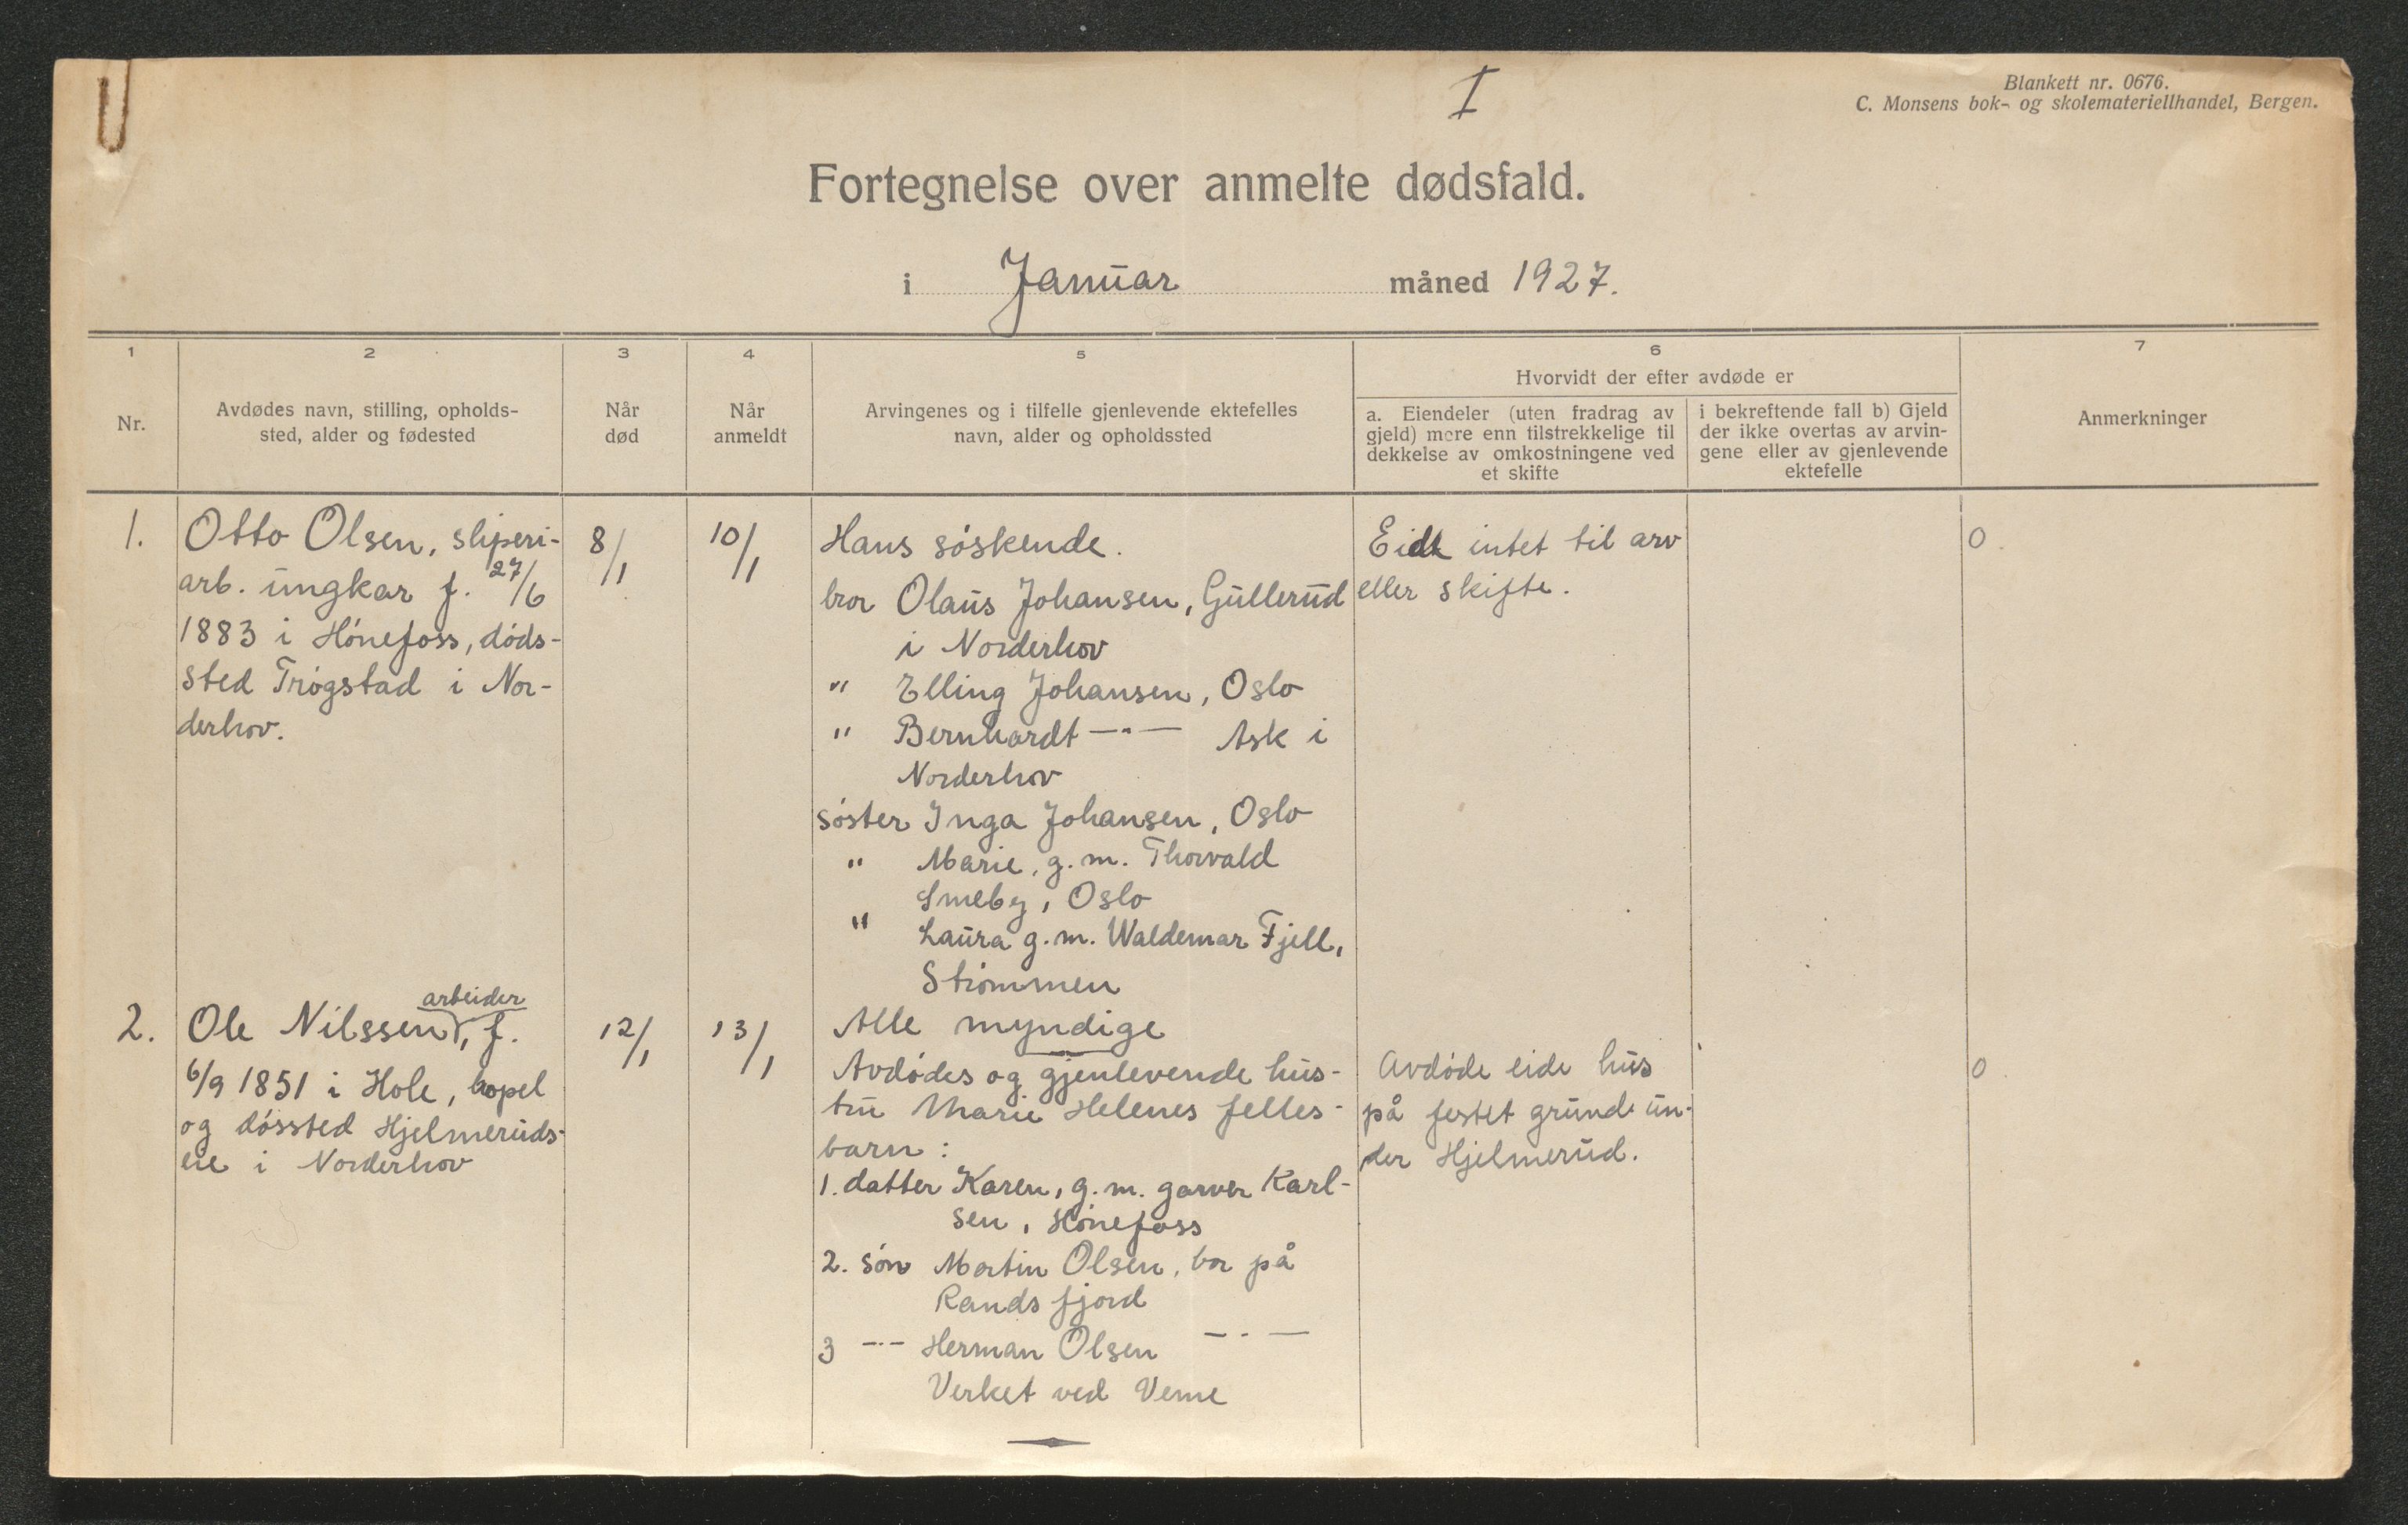 I
Blankett nr. 0676.
C. Monsens bok- og skolemateriellhandel, Bergen.
Fortegnelse over anmelte dødsfald.
i Januar måned 1927.
1
2
3
4
5
6
7
Nr.
Avdødes navn, stilling, opholds-
sted, alder og fødested
Når
død
Når
anmeldt
Arvingenes og i tilfelle gjenlevende ektefelles
navn, alder og opholdssted
Hvorvidt der efter avdøde er
a. Eiendeler (uten fradrag av
gjeld) mere enn tilstrekkelige til
dekkelse av omkostningene ved
et skifte
i bekreftende fall b) Gjeld
der ikke overtas av arvin-
gene eller av gjenlevende
ektefelle
Anmerkninger
1.
Otto Olsen, sliperi-
arb. ungkar f. 27/6
1883 i Hónefoss, dóds-
sted Trógstad i Nor-
derhov.
8/1
10/1
Hans sóskende.
bror Olaus Johansen, Gullerud
i Norderhov
" Elling Johansen, Oslo
" Bernhardt —"— Ask i
Norderhov
sóster Inga Johansen, Oslo
" Marie, g.m. Thorvald
Smeby, Oslo
" Laura g.m. Waldemar Fjell,
Strómmen
Alle myndige
Eidt intet til arv
eller skifte.
0
2.
arbeider
Ole Nilssen, f.
6/9 1851 i Hole, bopel
og dóssted Hjelmeruds-
eie i Norderhov
12/1
13/1
Avdódes og gjenlevende hus-
tru Marie Helenes felles-
barn:
1. datter Karen, g.m. garver Karl-
sen, Hónefoss
2. són Martin Olsen, bor på
Randsfjord
3 —"— Herman Olsen —"—
Verket ved Veme
Avdóde eide hus
på festet grund un-
der Hjelmerud.
0